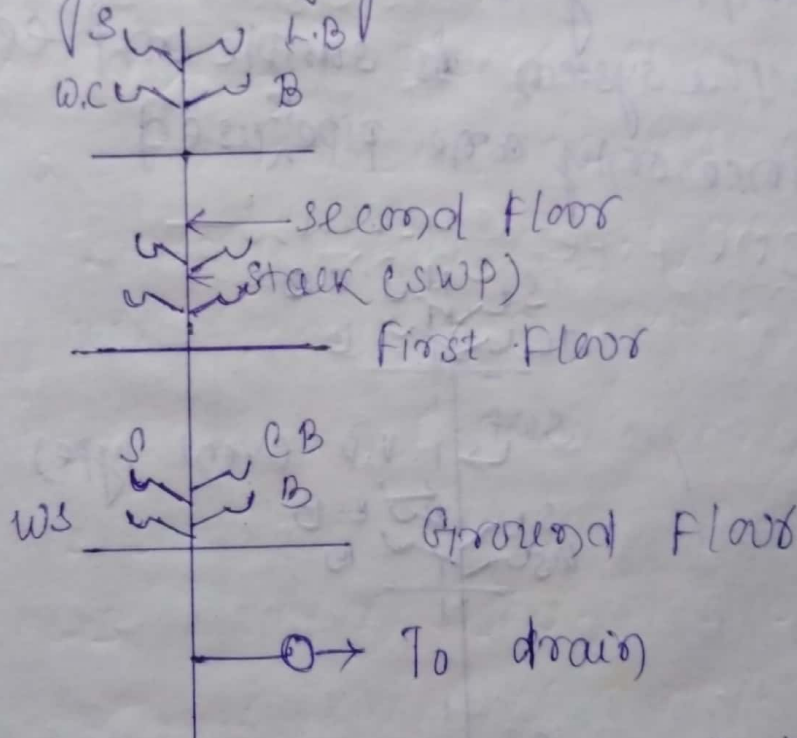 S L.B
W.C B
second Floor
Stack (SWP)
First Floor
S CB
B
WS
Ground Floor
To drain